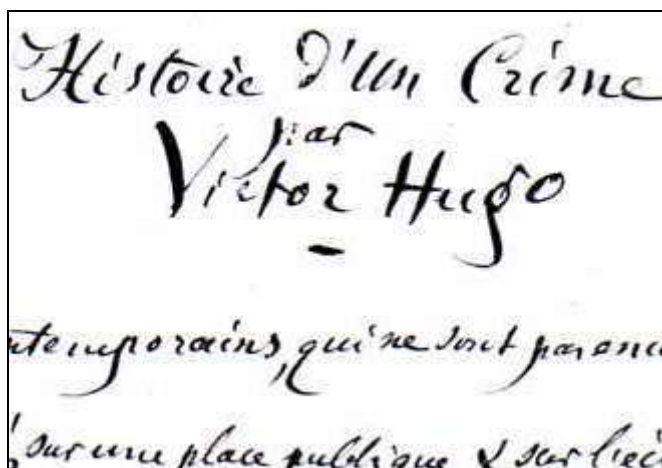 Histoire d'un Crime
par
Victor Hugo
ntemporains, qui ne sont pas enc
sur une place publique & sur